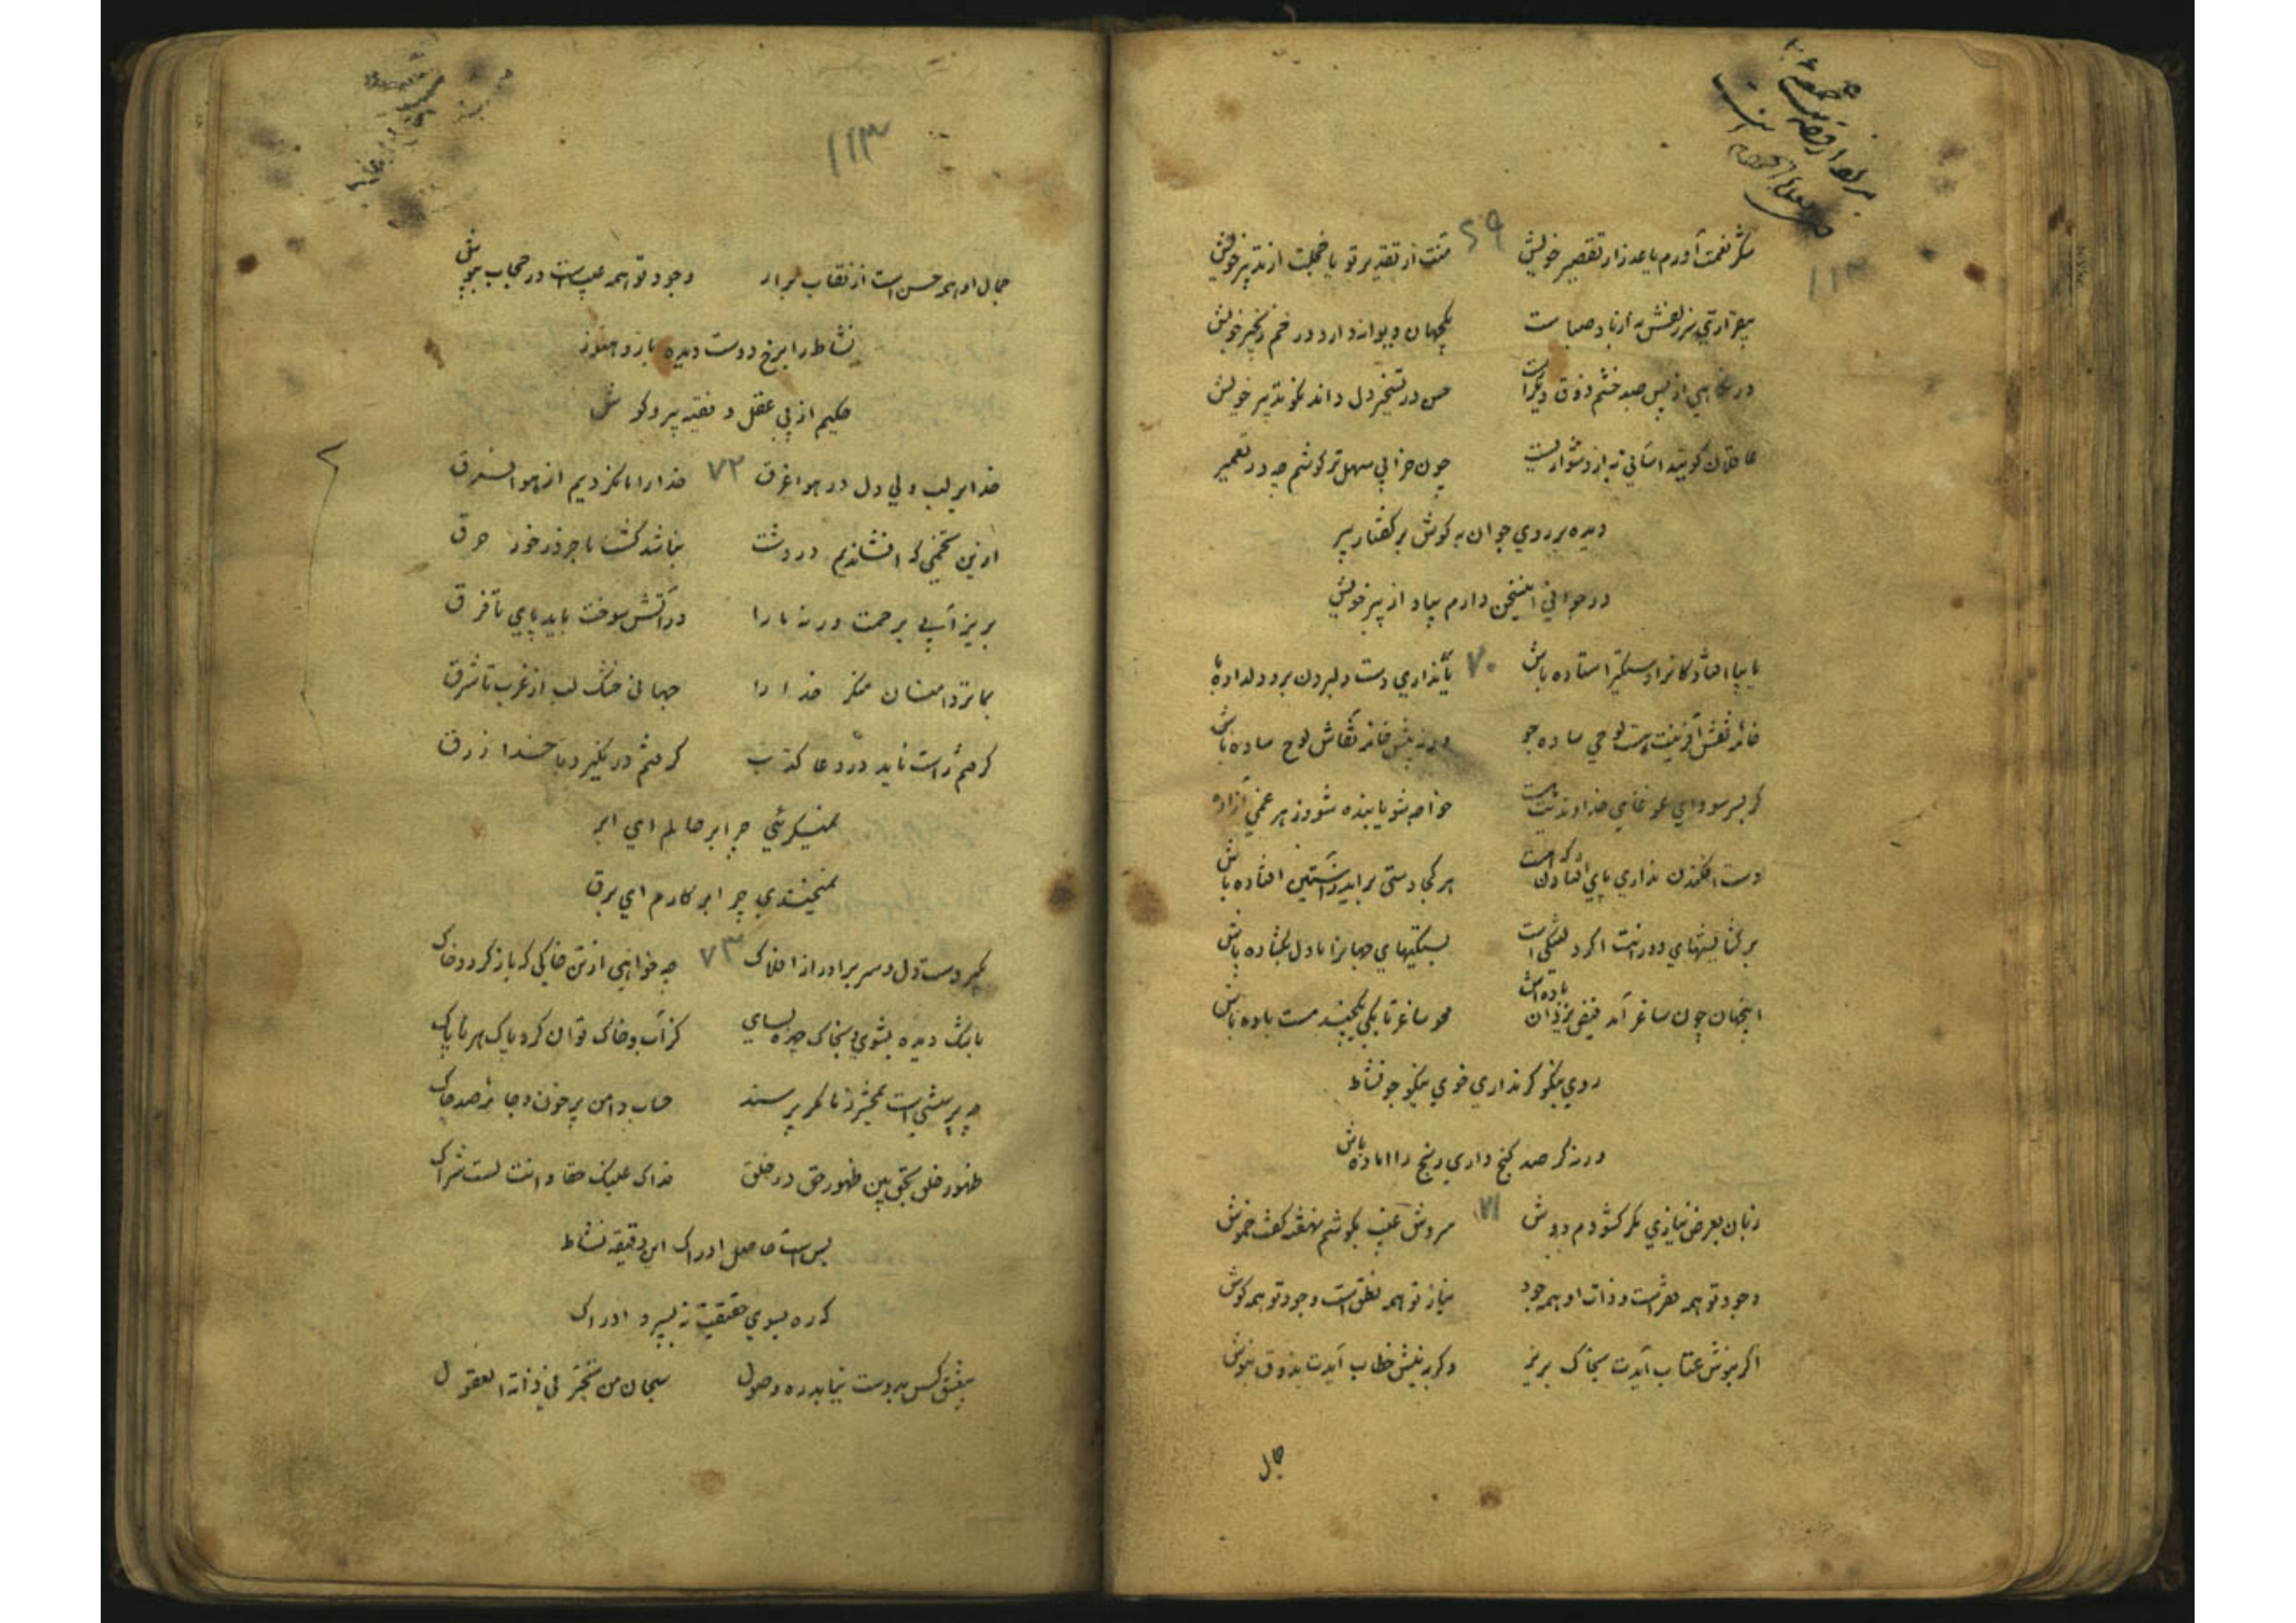 ۱۱۳
شکر نعمت آورم یا عذر از تقصیر خویش ۶۹ منت از تقدیر تو یا خجلت از تدبیر خویش
بیقراری سر زلفش نه از باد صباست یکجهان دیوانه دارد در خم زنجیر خویش
در نگاهی از پس صد خشم ذوق دیگر است حسن در تسخیر دل داند نکو تدبیر خویش
عاقلان گویند آسانی نه از دشواریست چون خرابی سهل تر کوشم چه در تعمیر
دیده بر روی جوان به گوش بر گفتار پیر
در جوانی اینسخن دارم بیاد از پیر خویش
یا بپا افتادگانرا دستگیر استاده باش ۷۰ یا نداری دست دلبردن برو دلداده با
خانه نقش آفرینت است لوحی ساده جو ورنه پیش خامه نقاش لوح ساده باش
گر بسر سودای غوغای خداوندیت نیست خواجه شو یا بنده شو وز هر غمی آزاده
دست افکندن نداری پای افتادن که است هر کجا دستی برآید ز آستین افتاده باش
بر گشایشهای دورانت اگر دلتنگی است بستگیهای جهانرا با دل بگشاده باش
اینجهان چون ساغر آمد فیض یزدان باده اش محو ساغر تا بکی یکچند مست باده باش
روی نیکو گر نداری خوی نیکو جو نشاط
ورنه گر صد گنج داری رنج را آماده باش
زبان بعرض نیازی مگر گشودم دوش ۷۱ سروش غیب بگوشم نهفته گفت خموش
وجود تو همه فقر است و ذات او همه جود نیاز تو همه نطق است وجود تو همه گوش
اگر بنوش عتاب آیدت بخاک بریز وگر به نیش خطاب آیدت بذوق بنوش
جمال
۱۱۳
جمال او همه حسن است از نقاب برآر وجود تو همه عیب است در حجاب بپوش
نشاط را برخ دوست دیده باز و هنوز
حکیم از پی عقل و فقیه پیرو گوش
خدا بر لب ولی دل در هوا غرق ۷۲ خدا را ما نکردیم از هوا فرق
از این تخمی که افشاندیم در دشت نباشد کشت ما جز در خور حرق
بریز آبی بر حمت ورنه ما را در آتش سوخت باید پای تا فرق
بما تردامنان منگر خدا را جهانی خشک لب از غرب تا شرق
گرفتم راست ناید در دعا کذب گرفتم در نگیرد با خدا زرق
نمیگرئی چرا بر حالم ای ابر
نمیخندی چرا بر کارم ای برق
بگیر دست دل و سر برآور از افلاک ۷۳ چه خواهی از تن خاکی که باز گردد خاک
باشک دیده بشوی و بخاک چهره بسای کز آب و خاک توان کرد پاک هر ناپاک
چه پرسشی است بمحشر ز ما مگر پرسند حساب دامن پر خون و جامه صد چاک
ظهور خلق بحق بین ظهور حق در خلق فذاک علیک حقا و انت لست تراک
بس است حاصل ادراک این دقیقه نشاط
که ره بسوی حقیقت نسپرد ادراک
بعشق کس بدوست نیابد ره وصول سبحان من تحیر فی ذاته العقول